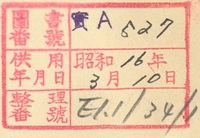 圖書番號 實A 527
供用年月日 昭和16年3月10日
整理番號 E1.1/34/1